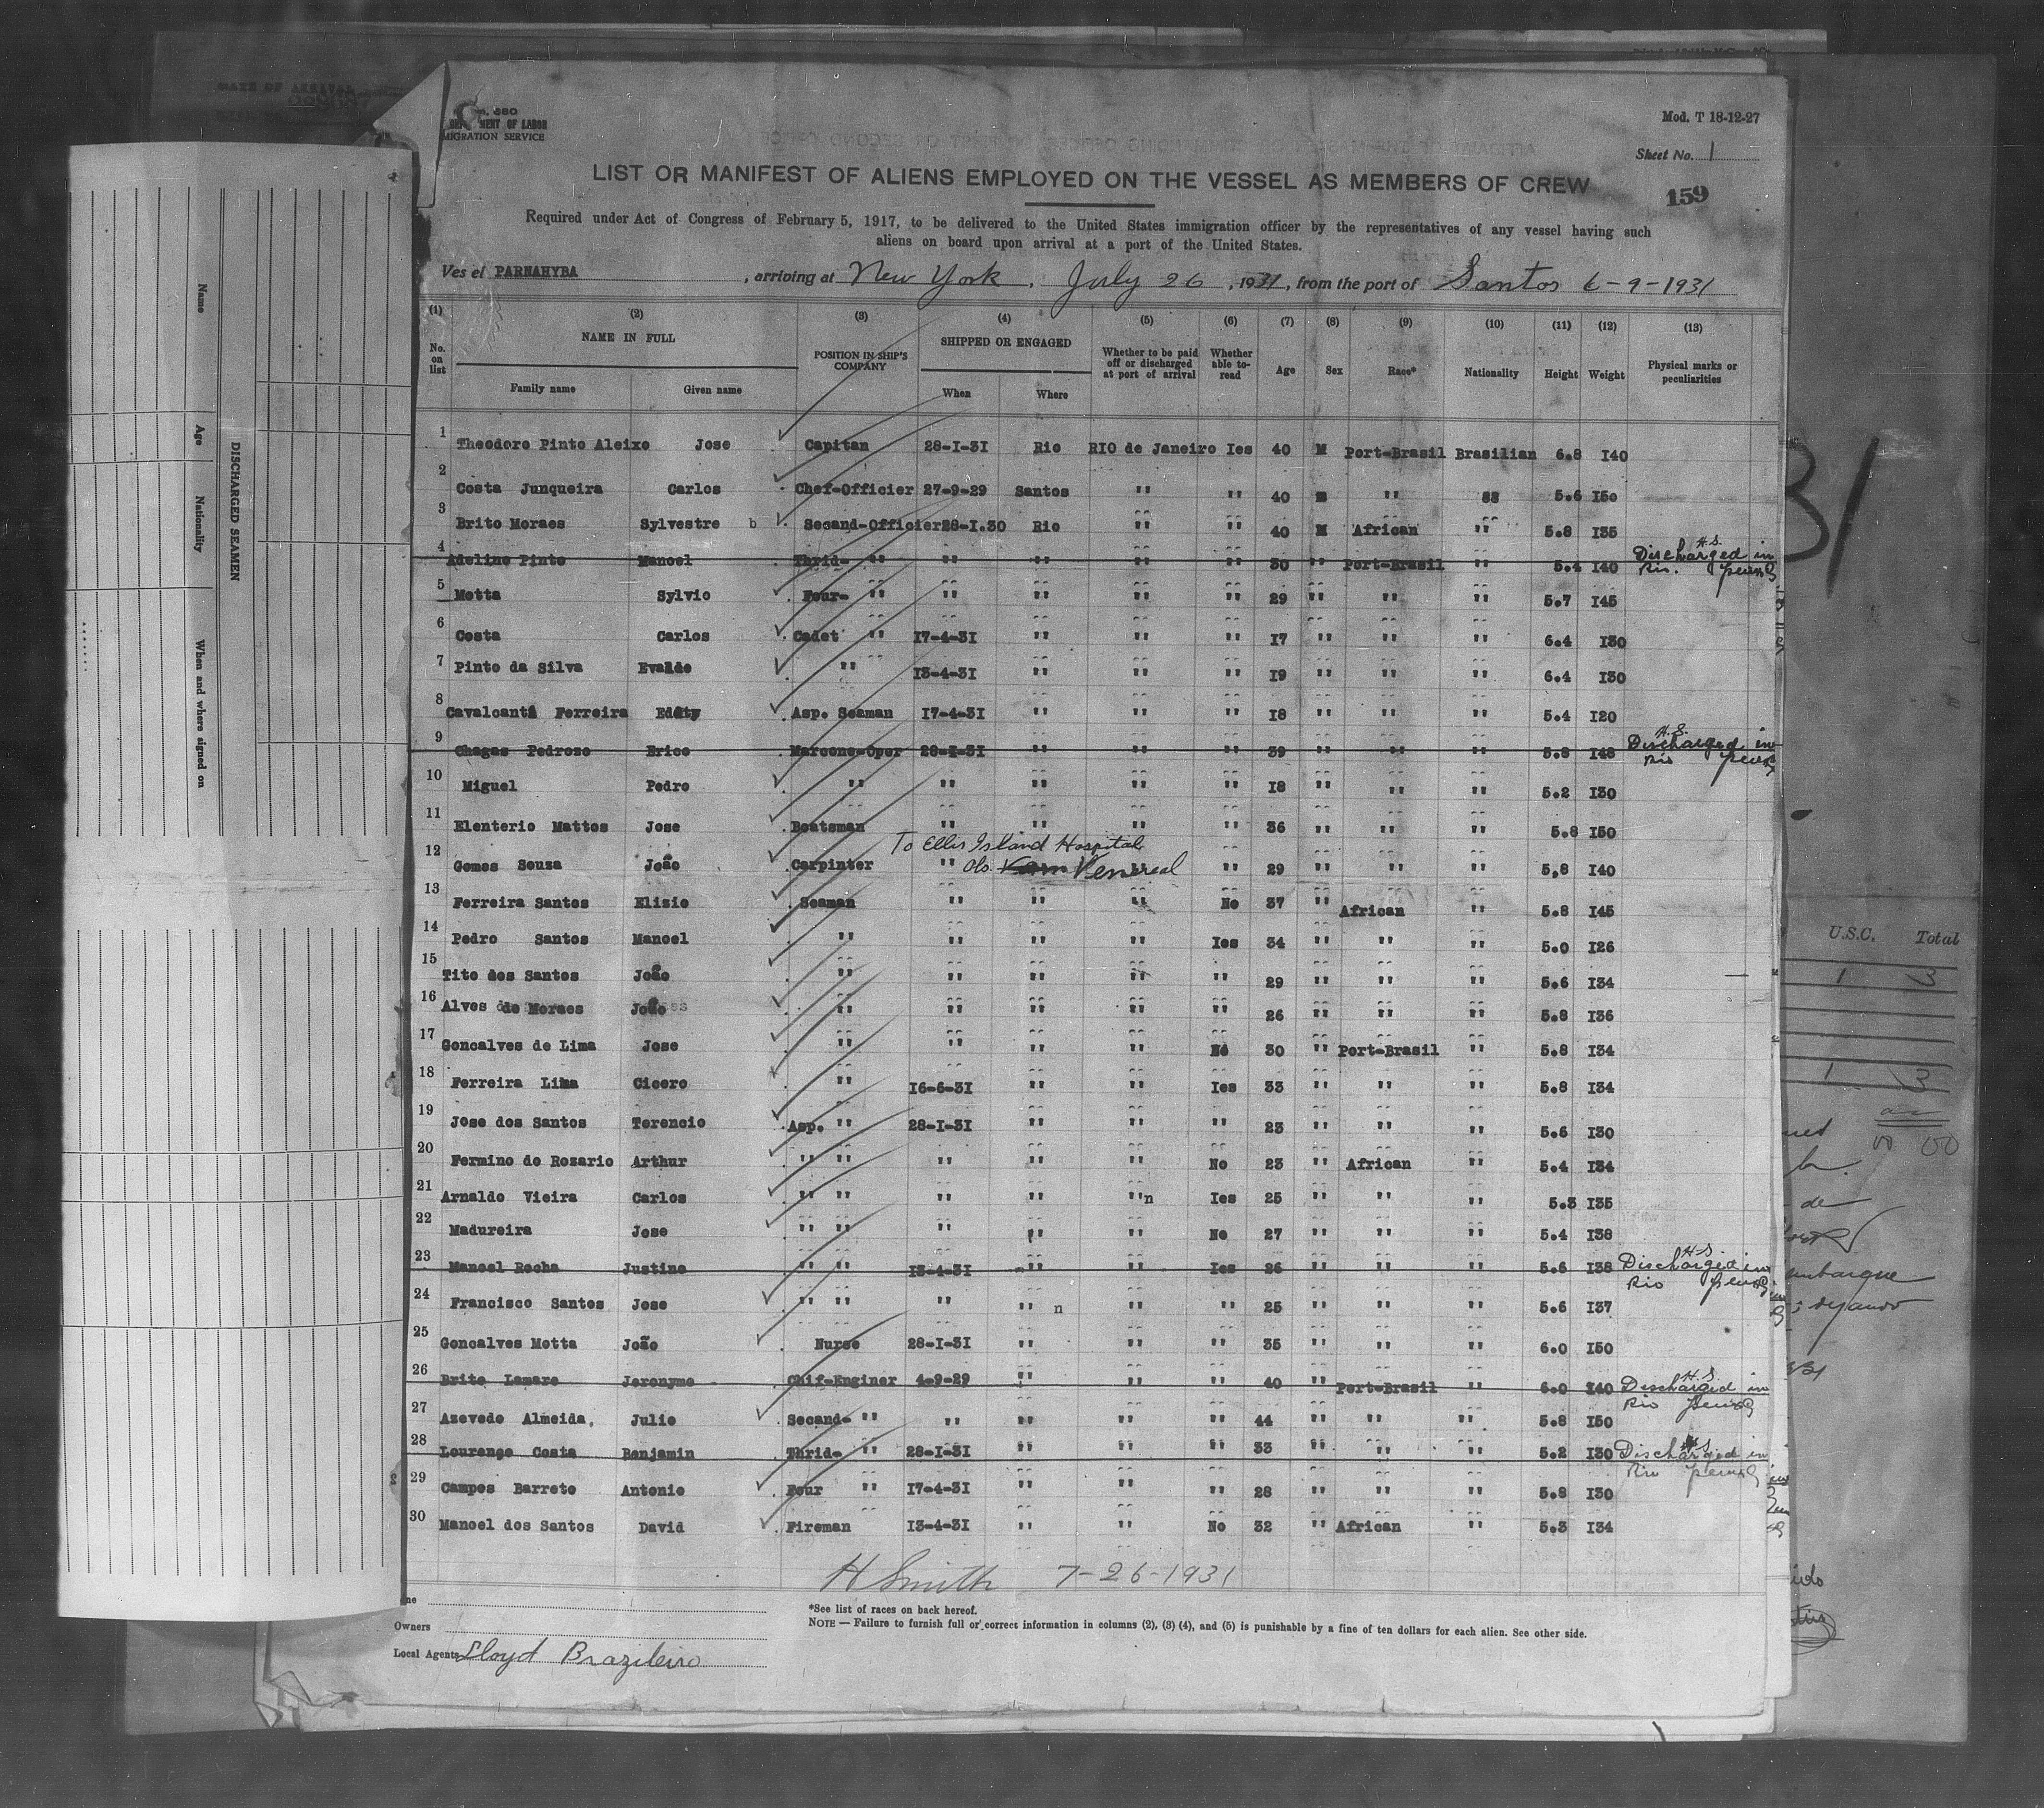 DEPARTMENT OF LABOR
MIGRATION SERVICE
Mod. T 18-12-27
Sheet No. 1
159
LIST OR MANIFEST OF ALIENS EMPLOYED ON THE VESSEL AS MEMBERS OF CREW
Required under Act of Congress of February 5, 1917, to be delivered to the United States immigration officer by the representatives of any vessel having such
aliens on board upon arrival at a port of the United States.
Ves el PARNAHYBA , arriving at New York, July 26, 1931, from the port of Santos 6-9-1931
(1) (2) (3) (4) (5) (6) (7) (8) (9) (10) (11) (12) (13)
No. on list NAME IN FULL Family name Given name POSITION IN SHIP'S COMPANY SHIPPED OR ENGAGED When Where Whether to be paid off or discharged at port of arrival Whether able to read Age Sex Race* Nationality Height Weight Physical marks or peculiarities
1 Theodoro Pinto Aleixo Jose Capitan 28-I-3I Rio RIO de Janeiro Ies 40 M Port-Brasil Brasilian 6.8 I40
2 Costa Junqueira Carlos Chef-Officier 27-9-29 Santos " " 40 m " 88 5.6 I50
3 Brito Moraes Sylvestre b Secand-Officier 28-I.30 Rio " " 40 M African " 5.8 I35
4 Adelino Pinto Manoel Thrid- " " " " " 30 " Port-Brasil " 5.4 I40 H.S. Discharged in Rio.
5 Motta Sylvio Four- " " " " " 29 " " " 5.7 I45
6 Costa Carlos Cadet " 17-4-31 " " " I7 " " " 6.4 I30
7 Pinto da Silva Evaldo " I3-4-3I " " " I9 " " " 6.4 I30
8 Cavalcanti Ferreira Eddy Asp. Seaman I7-4-3I " " " I8 " " " 5.4 I20
9 Chagas Pedroso Brico Marcono-Oper 28-I-3I " " " 39 " " " 5.8 I48 H.S. Discharged in Rio
10 Miguel Pedro " " " " " I8 " " " 5.2 I30
11 Elenterio Mattos Jose Boatsman " " " " 36 " " " 5.8 I50
To Ellis Island Hospital
12 Gomes Souza João Carpinter " Venereal " 29 " " " 5,8 I40
13 Ferreira Santos Elisio Seaman " " " No 37 " African " 5.8 I45
14 Pedro Santos Manoel " " " " Ies 34 " " " 5.0 I26
15 Tito dos Santos João " " " " " 29 " " " 5.6 I34
16 Alves de Moraes João " " " " " 26 " " " 5.8 I36
17 Goncalves de Lima Jose " " " " No 30 " Port-Brasil " 5.8 I34
18 Ferreira Lima Cicero " I6-6-3I " " Ies 33 " " " 5.8 I34
19 Jose dos Santos Terencio Asp. " 28-I-3I " " " 23 " " " 5.6 I30
20 Fermino do Rozario Arthur " " " " " No 23 " African " 5.4 I34
21 Arnaldo Vieira Carlos " " " " "n Ies 25 " " " 5.3 I35
22 Madureira Jose " " " " " No 27 " " " 5.4 I38
23 Manoel Rocha Justino " " I3-4-3I " " Ies 26 " " " 5.6 I38 H.S. Discharged in Rio
24 Francisco Santos Jose " " " " n " " 25 " " " 5.6 I37
25 Goncalves Motta João Nurse 28-I-3I " " " 35 " " " 6.0 I50
26 Brito Lamare Jeronymo Chif-Enginer 4-9-29 " " " 40 " Port-Brasil " 6.0 I40 H.S. Discharged in Rio
27 Azevedo Almeida, Julio Secand- " " " " " 44 " " " 5.8 I50
28 Lourenço Costa Benjamin Thrid- " 28-I-3I " " " 33 " " " 5.2 I30 H.S. Discharged in Rio
29 Campos Barreto Antonio Four " I7-4-3I " " " 28 " " " 5.8 I30
30 Manoel dos Santos David Fireman I3-4-3I " " No 32 " African " 5.3 I34
H Smith 7-26-1931
*See list of races on back hereof.
NOTE — Failure to furnish full or correct information in columns (2), (3) (4), and (5) is punishable by a fine of ten dollars for each alien. See other side.
Owners
Local Agents Lloyd Brazileiro
DISCHARGED SEAMEN
Name Age Nationality When and where signed on
31
U.S.C. Total
1 3
1 3
de
embarque